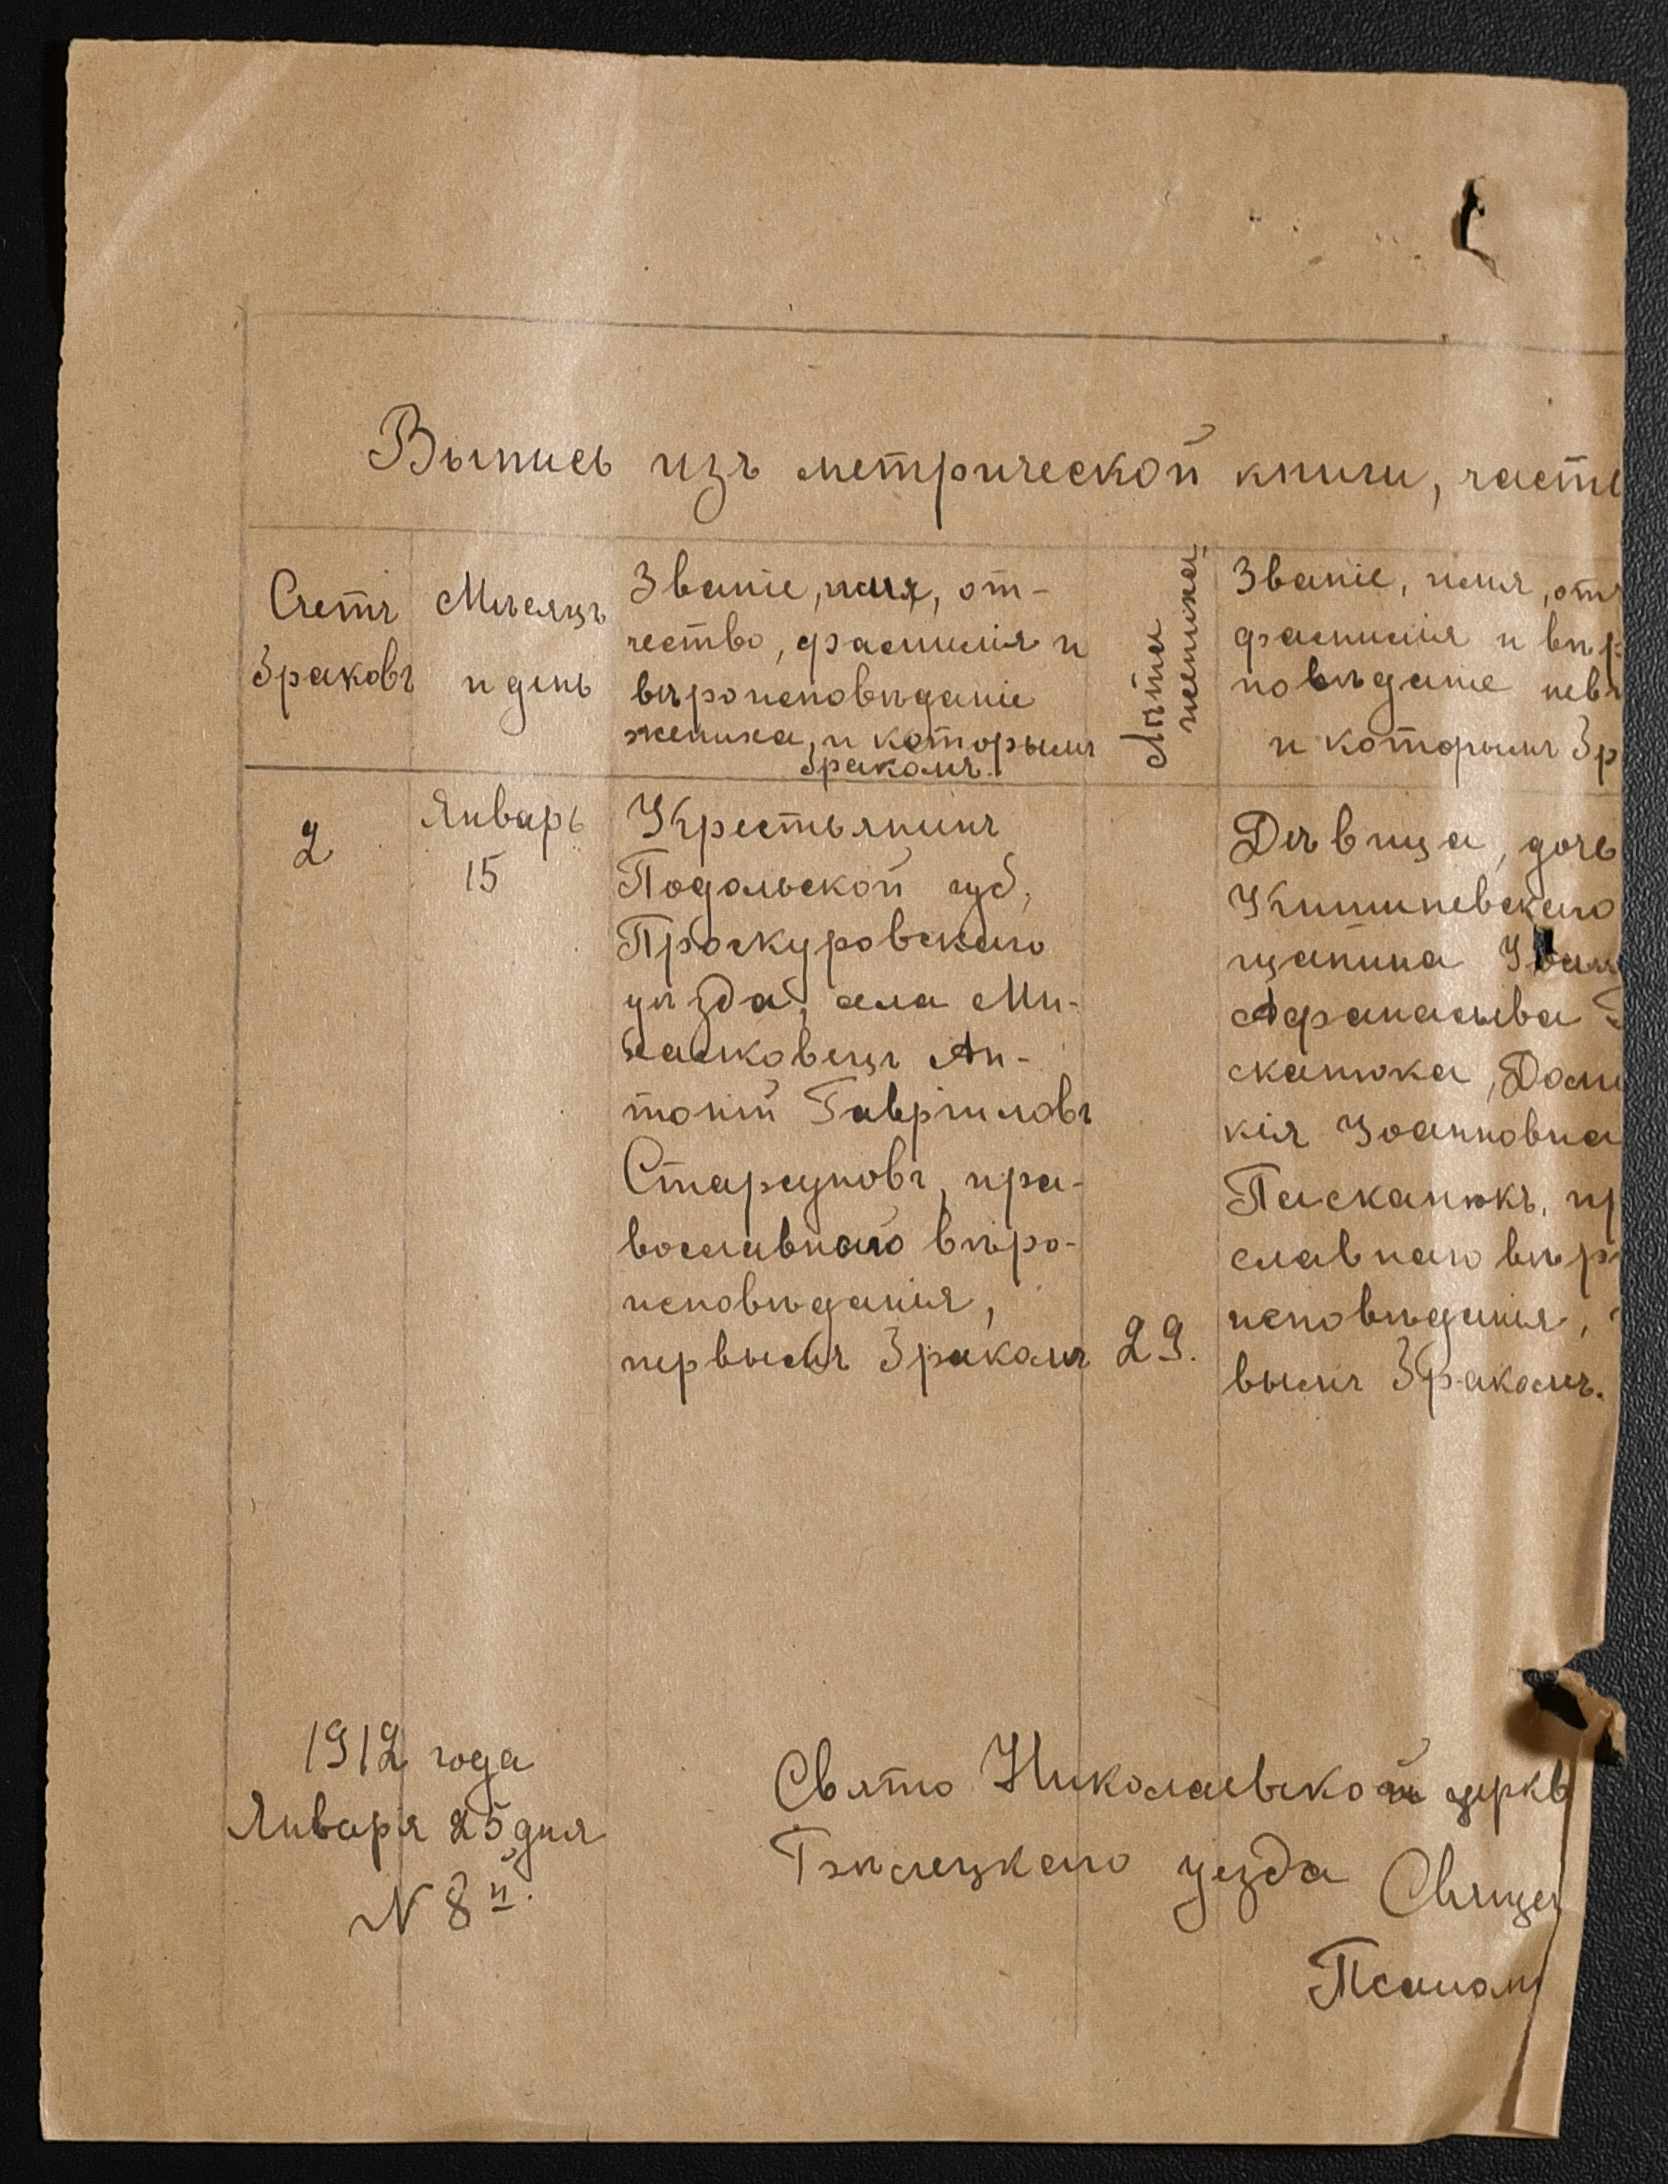 Выпись изъ метрической книги, часть
Счетъ
браковъ
Мѣсяцъ
и день
Званіе, имя, от-
чество, фамилія и
вѣроисповѣданіе
жениха, и которымъ
бракомъ.
Лѣта
жениха
Званіе, имя, отч
фамилія и вѣр
повѣданіе невѣ
и которымъ бр
2
Январь
15
Крестьянинъ
Подольской губ,
Проскуровскаго
уѣзда, села Ми-
халковецъ Ан-
тоній Гавріиловъ
Старсуновъ, пра-
вославнаго вѣро-
исповѣданія,
первымъ бракомъ
29.
Дѣвица, дочь
Кишиневскаго
щанина Іоан
Афанасьева
сканюка, Дом
кія Іоанновна
Пасканюкъ, пр
славнаго вѣр
исповѣданія,
вымъ бракомъ.
1912 года
Января 25 дня
N 8й.
Свято Николаевской церкв
уѣзда
Священ
Псалом